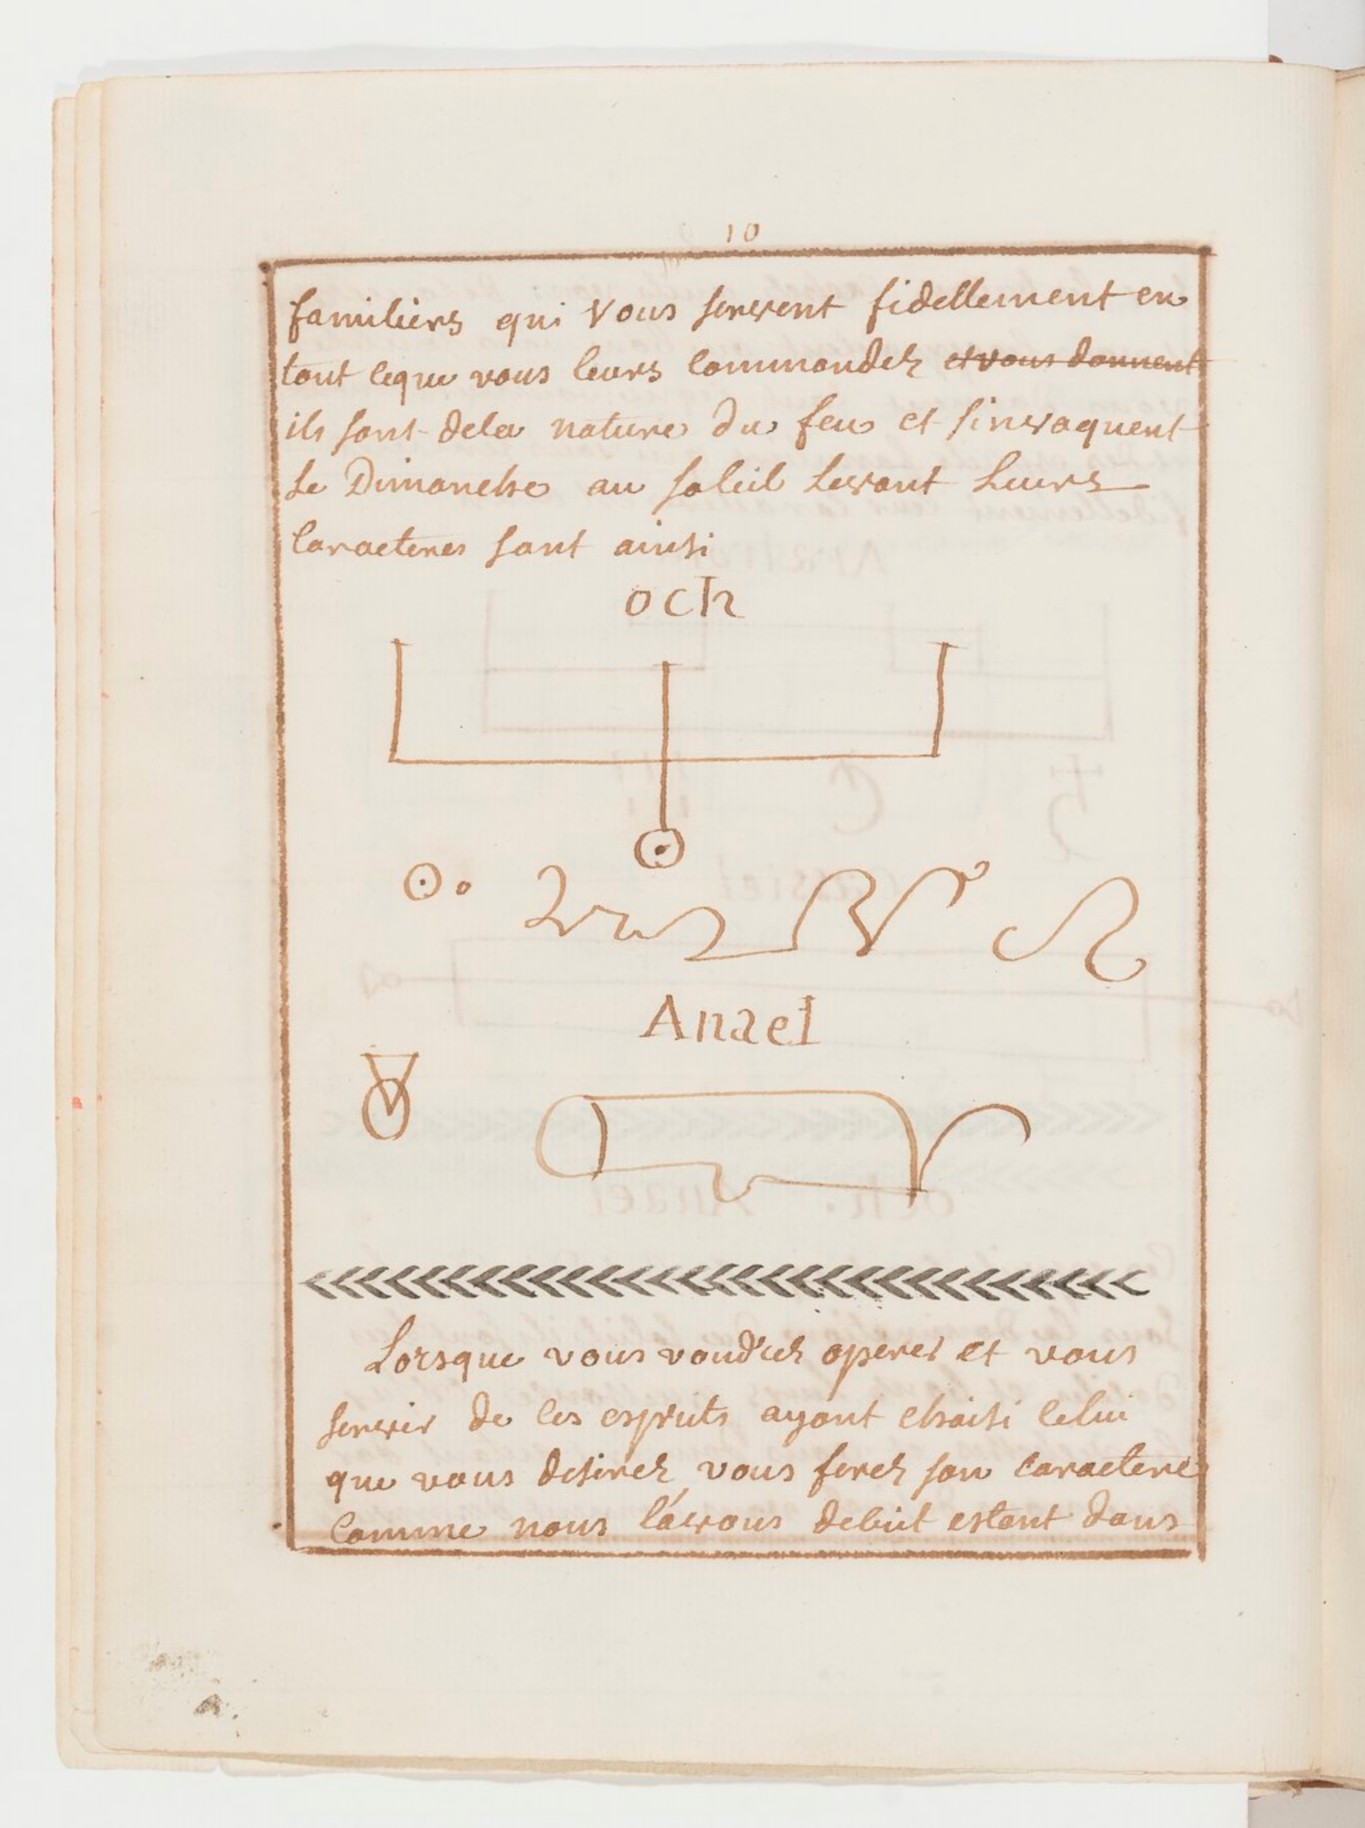 10
familiers qui vous servent fidellement en
tout ceque vous leurs commandez et vous donnent
ils sont dela nature du feu et sinvoquent
le Dimanche au soleil levant leurs
caracteres sont ainsi
och
Anael
Lorsque vous voudrez operer et vous
servir de ces esprits ayant choisi celui
que vous desirez vous ferez son caractere
comme nous l'avons debut estant dans